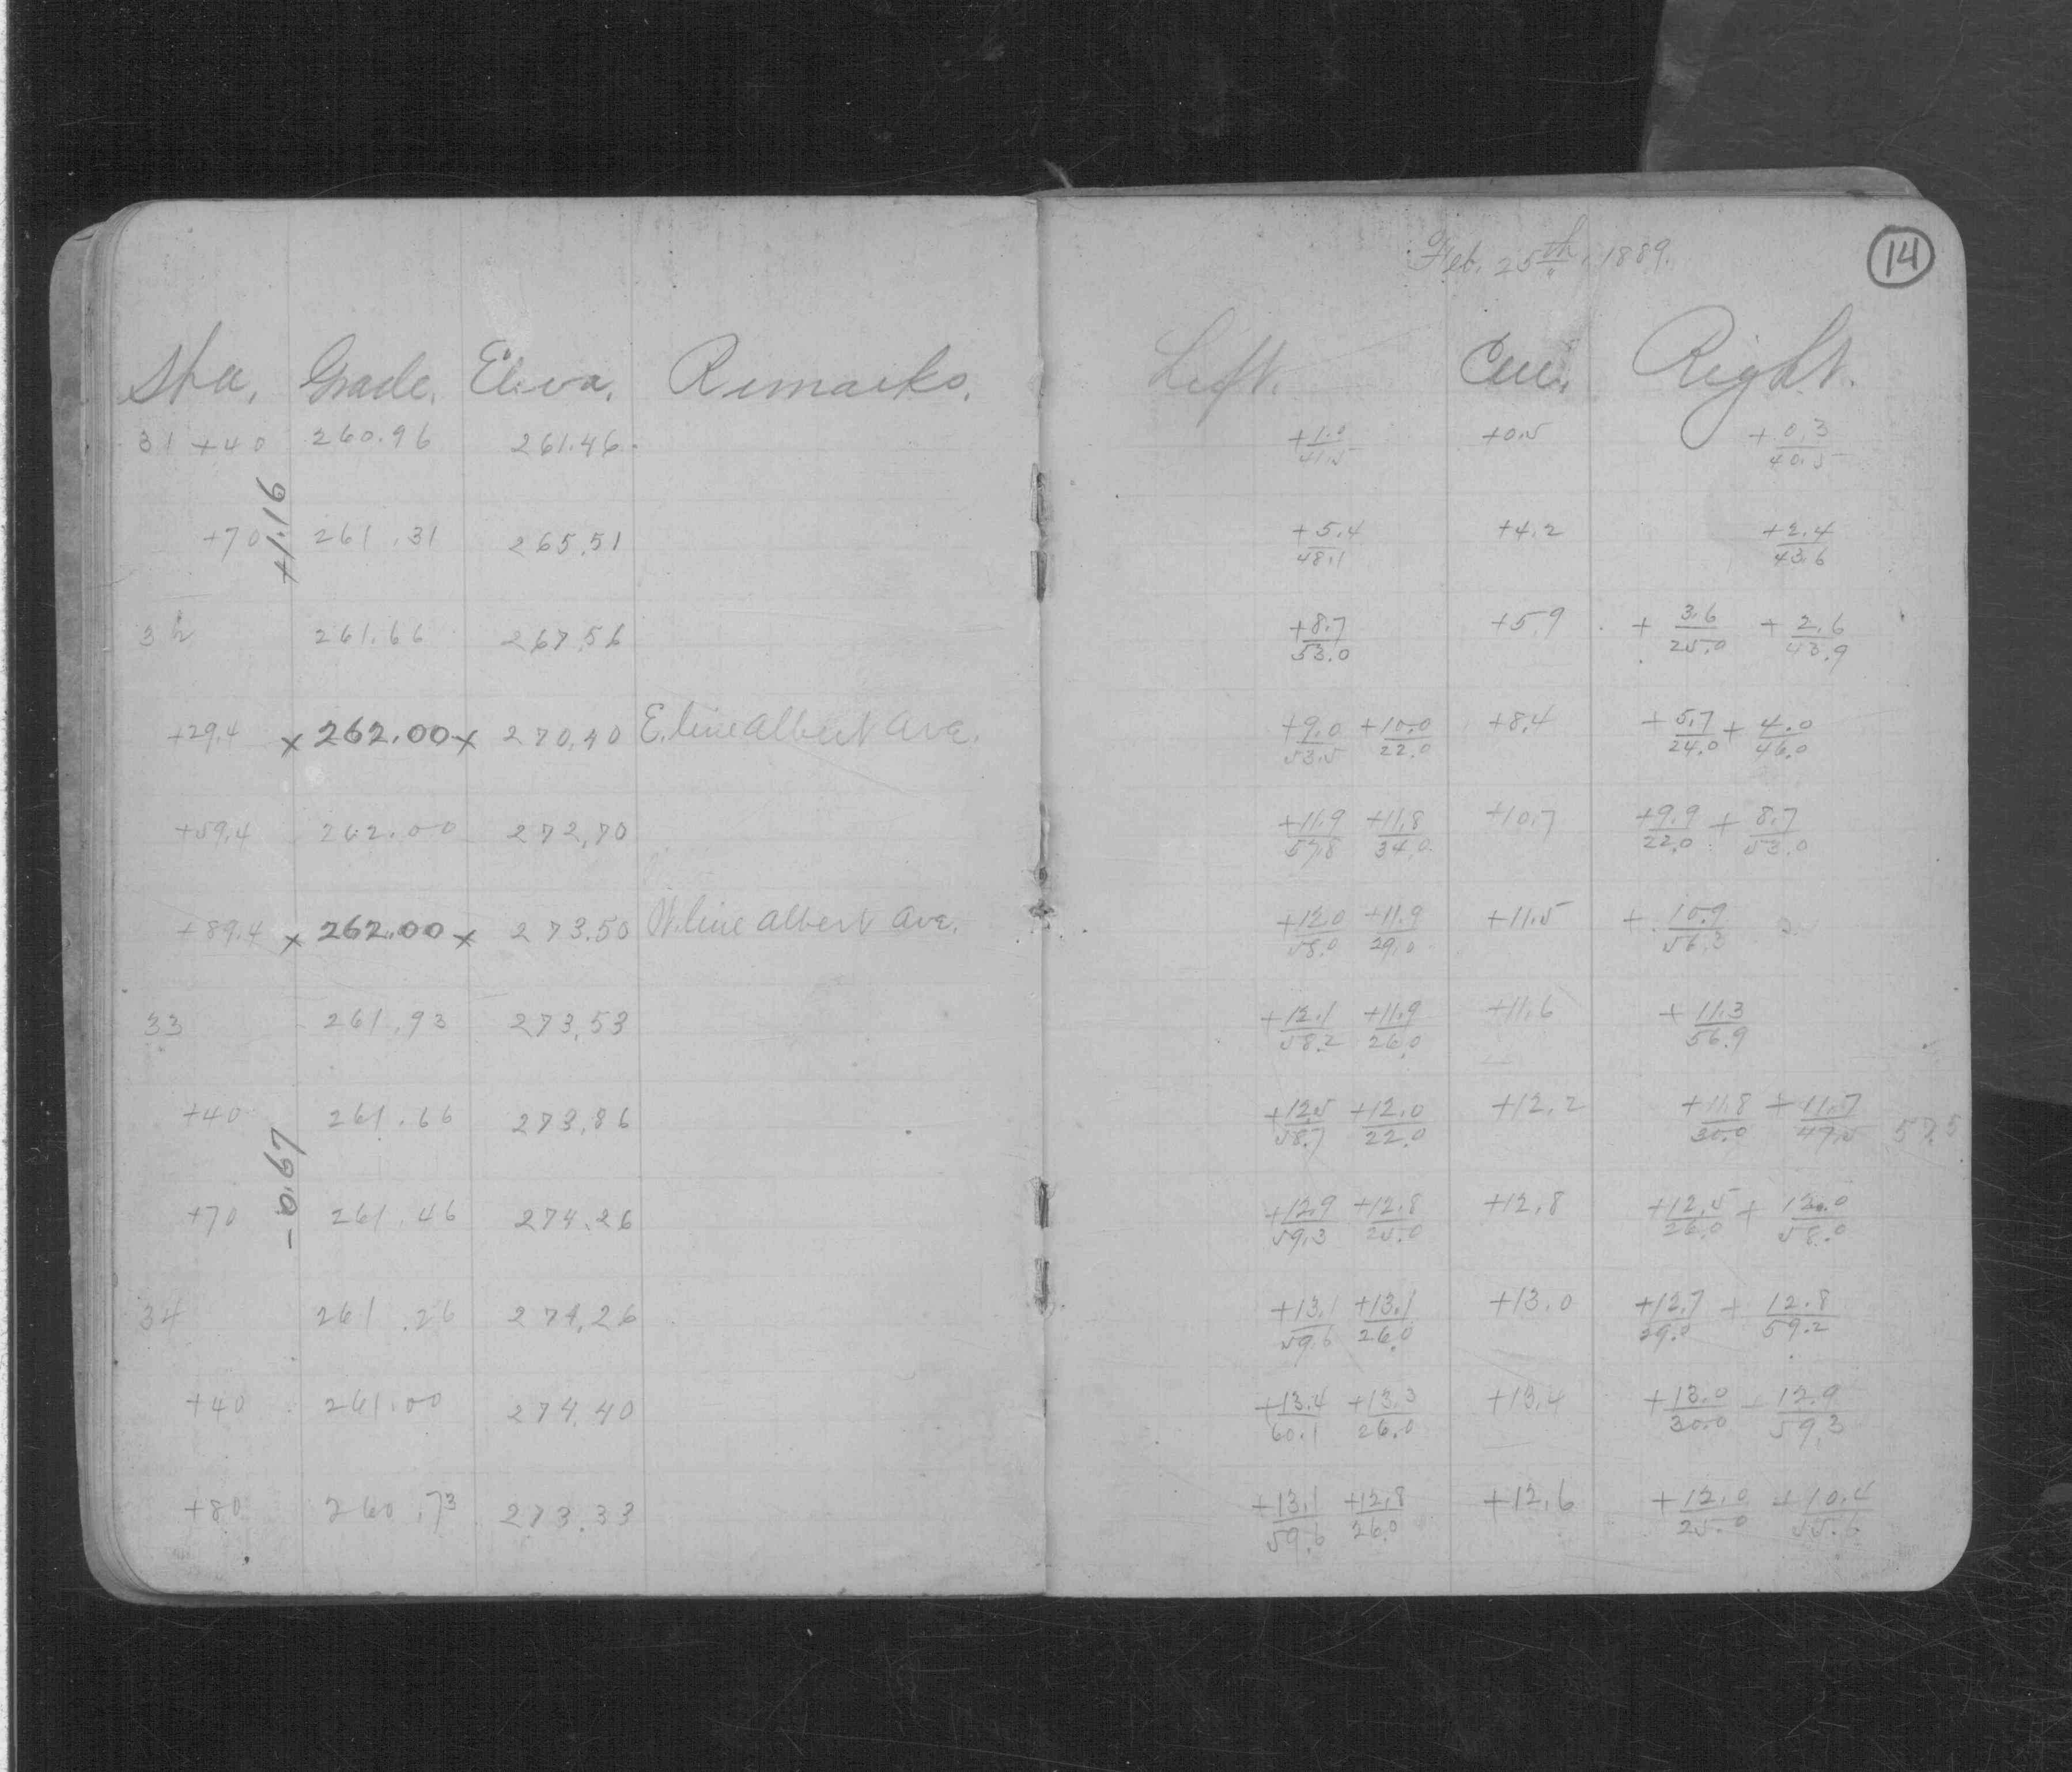 Feb. 25th, 1889.
14
Sta. Grade. Eleva. Remarks. Left. Cen. Right.
31 +40 260.96 261.46 +1.0/41.5 +0.5 +0.3/40.5
+1.16
+70 261.31 265.51 +5.4/48.1 +4.2 +2.4/43.6
32 261.66 267.56 +8.7/53.0 +5.9 +3.6/25.0 +2.6/43.9
+29.4 x 262.00 x 270.40 E. line Albert Ave. +9.0/53.5 +10.0/22.0 +8.4 +5.7/24.0 +4.0/46.0
+59.4 262.00 272.70 +11.9/57.8 +11.8/34.0 +10.7 +9.9/22.0 +8.7/53.0
+89.4 x 262.00 x 273.50 W. line Albert Ave. +12.0/58.0 +11.9/29.0 +11.5 +10.9/56.3
33 261.93 273.53 +12.1/58.2 +11.9/26.0 +11.6 +11.3/56.9
+40 261.66 273.86 +12.5/58.7 +12.0/22.0 +12.2 +11.8/30.0 +11.7/47.5 57.5
-0.67
+70 261.46 274.26 +12.9/59.3 +12.8/25.0 +12.8 +12.5/26.0 +12.0/58.0
34 261.26 274.26 +13.1/59.6 +13.1/26.0 +13.0 +12.7/29.0 +12.8/59.2
+40 261.00 274.40 +13.4/60.1 +13.3/26.0 +13.4 +13.0/30.0 +12.9/59.3
+80 260.73 273.33 +13.1/59.6 +12.8/26.0 +12.6 +12.0/25.0 +10.4/55.6